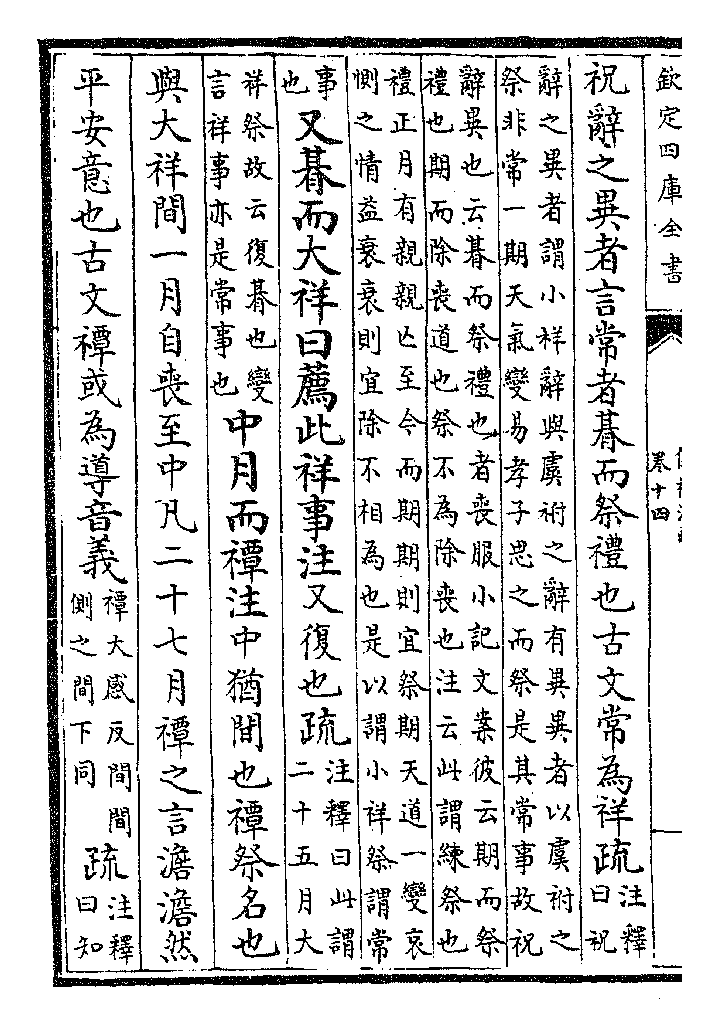 欽定四庫全書
卷十四
祝辭之異者言常者朞而祭禮也古文常為祥疏
注釋
曰祝
辭之異者謂小祥辭與虞祔之辭有異異者以虞祔之
祭非常一期天氣變易孝子思之而祭是其常事故祝
辭異也云朞而祭禮也者喪服小記文案彼云期而祭
禮也期而除喪道也祭不為除喪也注云此謂練祭也
禮正月有親親亡至今而期期則宜祭期天道一變哀
惻之情益衰衰則宜除不相為也是以謂小祥祭謂常
事
也
又朞而大祥曰薦此祥事注又復也疏
注釋曰此謂
二十五月大
祥祭故云復朞也變
言祥事亦是常事也
中月而禫注中猶間也禫祭名也
與大祥間一月自喪至中凡二十七月禫之言澹澹然
平安意也古文禫或為導音義
禫大感反間間
側之間下同
疏
注釋
曰知